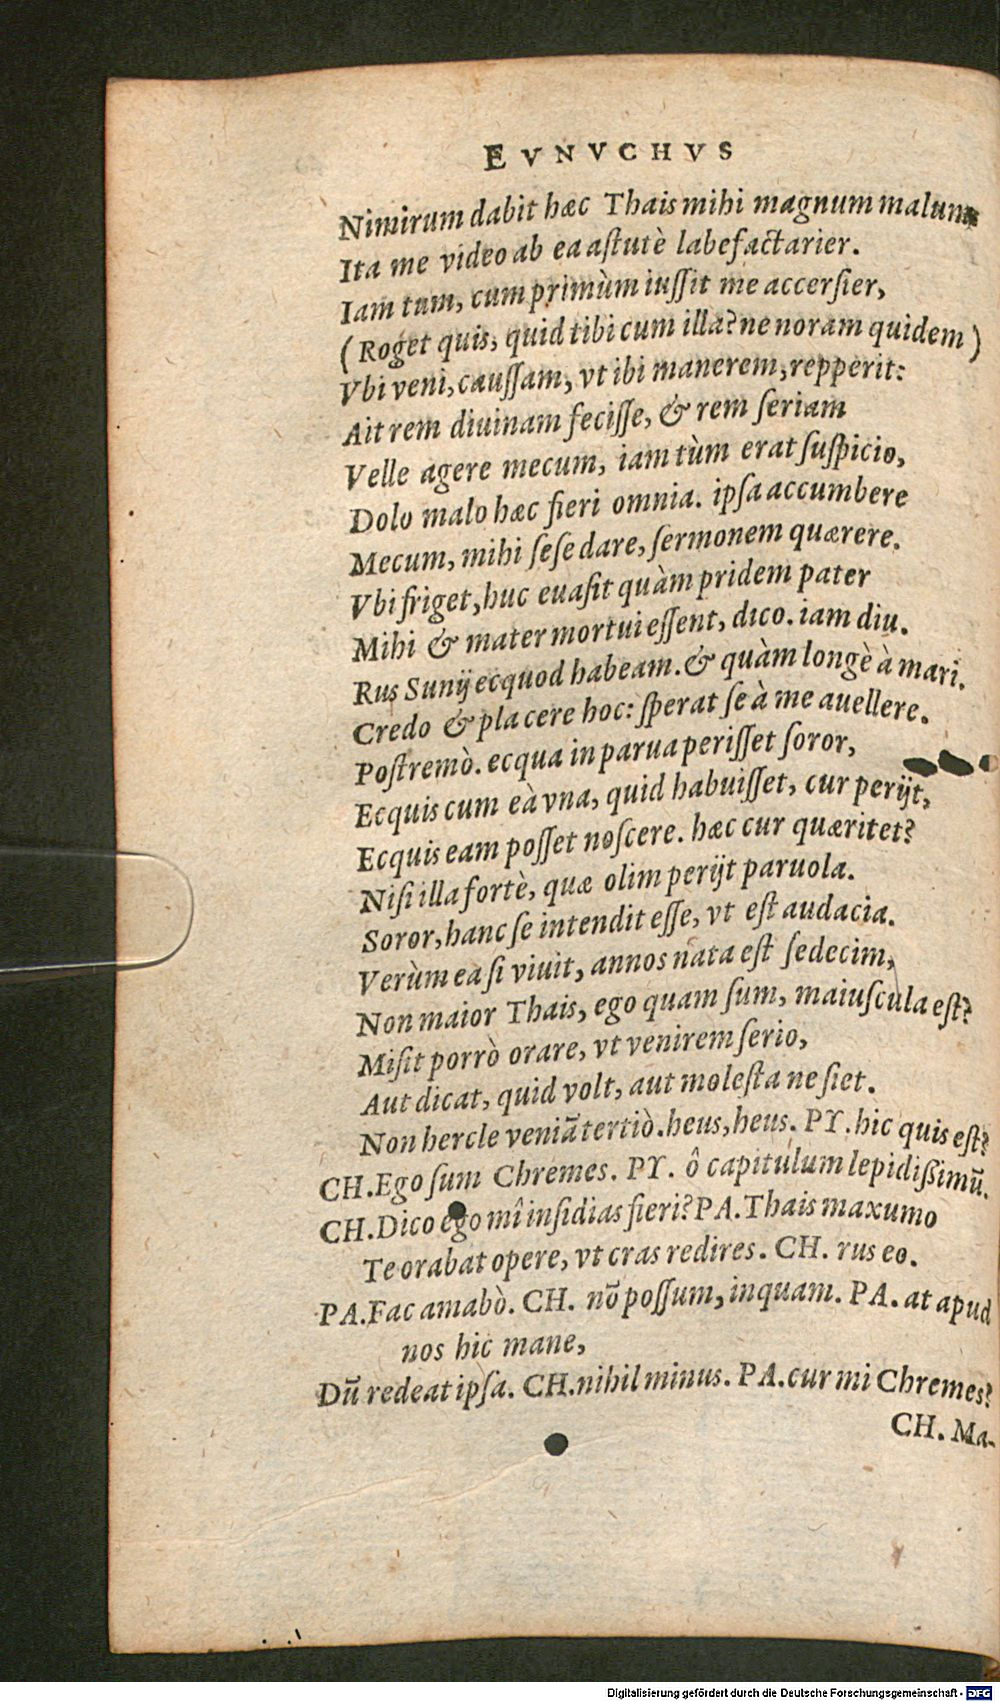 EVNVCHVS
Nimirum dabit hæc Thais mihi magnum malum
Ita me video ab ea aſtutè labefactarier.
Iam tum, cum primùm iuſſit me accerſier,
(Roget quis, quid tibi cum illa? ne noram quidem)
Vbi veni, cauſſam, vt ibi manerem, repperit:
Ait rem diuinam feciſſe, & rem ſeriam
Velle agere mecum, iam tùm erat ſuſpicio,
Dolo malo hæc fieri omnia. ipſa accumbere
Mecum, mihi ſeſe dare, ſermonem quærere.
Vbi friget, huc euaſit quàm pridem pater
Mihi & mater mortui eſſent, dico. iam diu.
Rus Sunij ecquod habeam. & quàm longè à mari.
Credo & placere hoc: ſperat ſe à me auellere.
Poſtremò. ecqua inparua periſſet ſoror,
Ecquis cum eà vna, quid habuiſſet, cur perijt,
Ecquis eam poſſet noſcere. hæc cur quæritet?
Niſi illa fortè, quæ olim perijt paruola.
Soror, hanc ſe intendit eſſe, vt eſt audacia.
Verùm ea ſi viuit, annos nata eſt ſedecim,
Non maior Thais, ego quam ſum, maiuſcula eſt?
Miſit porrò orare, vt venirem ſerio,
Aut dicat, quid volt, aut moleſta ne ſiet.
Non hercle veniã tertiò. heus, heus. PY. hic quis eſt?
CH. Ego ſum Chremes. PY. ô capitulum lepidiſsimũ.
CH. Dico ego mî inſidias fieri? PA. Thais maxumo
Te orabat opere, vt cras redires. CH. rus eo.
PA. Fac amabò. CH. nõ poſſum, inquam. PA. at apud
nos hic mane,
Dũ redeat ipſa. CH. nihil minus. PA. cur mi Chremes?
CH. Ma-
Digitalisierung gefördert durch die Deutsche Forschungsgemeinschaft - DFG